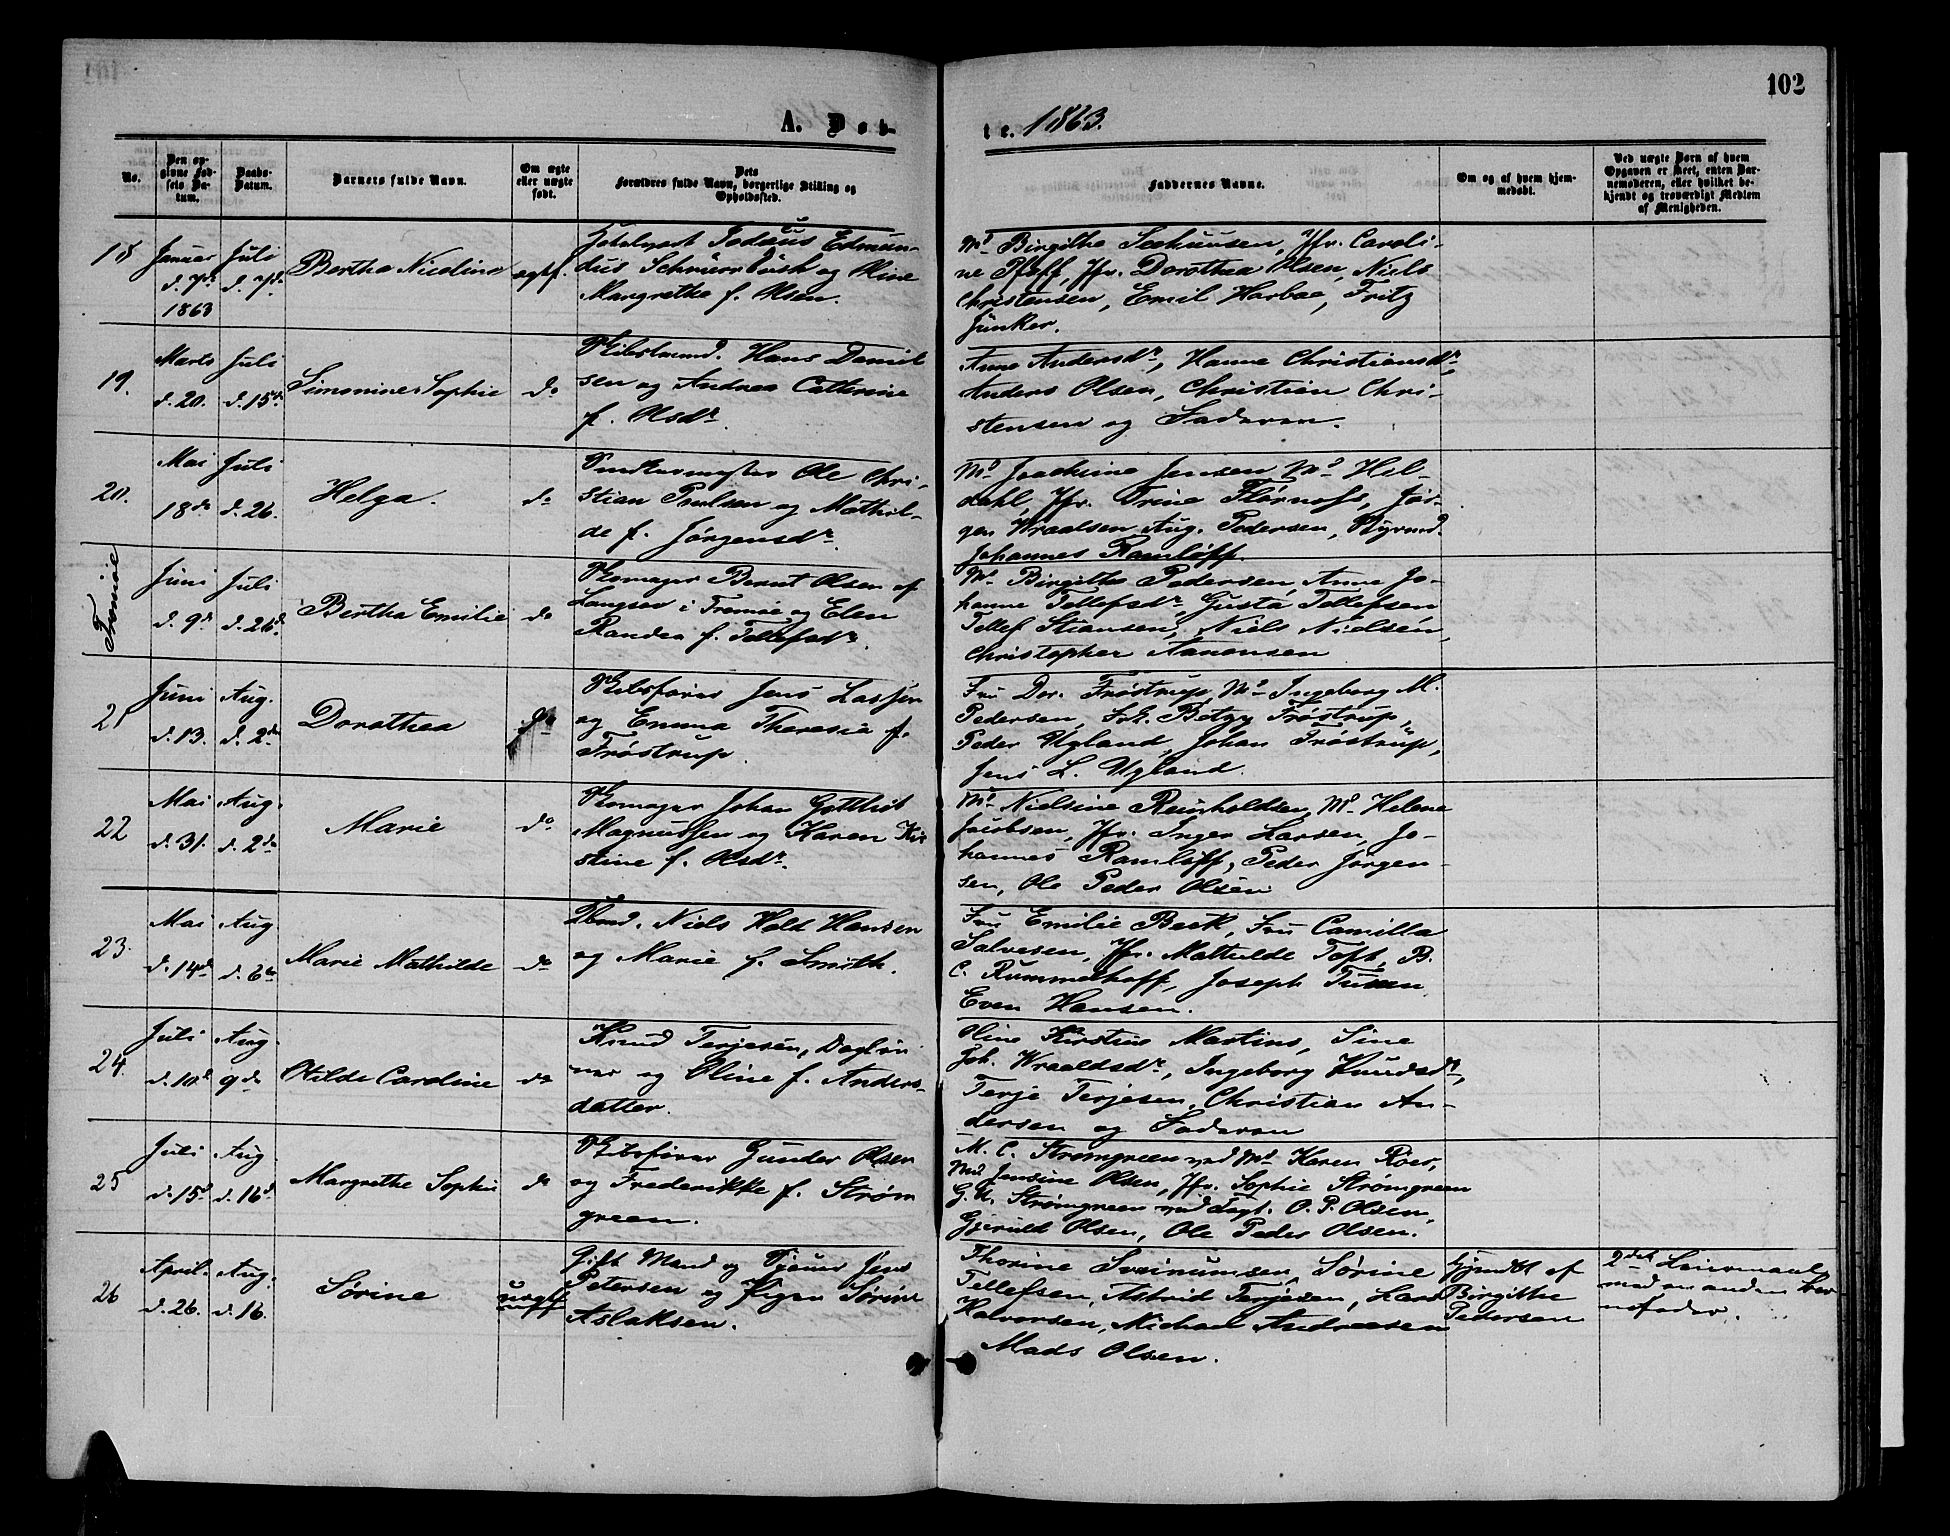 102
A. Døb-
te. 1863.
No.
Den op-
givne Fød-
sels Da-
tum.
Daabs-
Datum.
Barnets fulde Navn.
Om ægte
eller uægte
født.
Dets
Forældres fulde Navn, borgerlige Stilling og
Opholdssted.
Faddernes Navne.
Om og af hvem hjem-
medøbt.
Ved uægte Børn af hvem
Opgaven er skeet, enten Bar-
nemoderen, eller hvilket be-
kjendt og troværdigt Medlem
af Menigheden.
18
Januar
d. 7de
1863
Juli
d. 7de
Bertha Nicoline
ægtf.
Edmun-
dus og Oline
Margrethe f. Olsen.
Md Birgithe Jfr. Caroli-
ne Pfeff, Jfr. Dorothea Olsen, Niels
Christensen, Emil Harboe, Fritz
Junker.
19.
Marts
d. 20.
Juli
d. 15de
Simonine Sophie
do
Skibstømd. Hans Daniel
sen og Andrea Cathrine
f. Olsdr.
Anne Andersdr, Hanne Christiansdr,
Anders Olsen, Christian Chri-
stensen og Faderen.
20.
Mai
18de
Juli
d. 26.
Helga.
do
Ole Chri-
stian Poulsen og Mathil-
de f. Jørgensdr.
Md Joachine Jensen Md Hil-
dahl, Jfr. Trine Jør-
gen Wraalsen Aug. Pedersen, Styrmd.
Johannes Ramløff.
Tromøe
Juni
d. 9d
Juli
d. 26de
Bertha Emilie
do
Skomager Bernt Olsen af
Langsev i Tromøe og Elen
Randea f. Tellefsdr.
Md Birgithe Pedersen, Anne Jo-
hanne Tellefsdr, Gusta Tellefsen
Tellef Stiansen, Niels Nielsen,
Christopher Aanonsen
21
Juni
d. 13.
Aug.
d. 2de
Dorothea
do
Skibsfører Jens Lassen
og Emma Theresia f.
Frøstrup.
Fru Dor. Frøstrup, Md Ingeborg M.
Pedersen, Frk. Betzy Frøstrup,
Peder Ugland, Johan Frøstrup,
Jens L. Ugland.
22
Mai
d. 31.
Aug.
d. 2de
Marie
do
Skomager Johan Gottlieb
Magnussen og Karen Kir
stine f. Olsdr.
Md Nielsine Reinholdsen, Md Helene
Jacobsen, Jfr. Inger Larsen, Jo-
hannes Ramløff, Peder Jørgen-
sen, Ole Peder Olsen
23.
Mai
d. 14d
Aug
d. 6te
Marie Mathilde
do
Niels Hold Hansen
og Marie f. Smith.
Fru Emilie Beck, Fru Camilla
Salvesen, Jfr. Mathilde Toft, B.
C. Rummelhoff, Joseph
Even Hansen.
24.
Juli
d. 10d
Aug.
9de
Otilde Caroline
do
Knud Terjesen, Dagløn
ner og Oline f. Anders-
datter.
Oline Kirstine Martins, Sine
Joh. Wraaldsdr, Ingeborg Knudsdr,
Terje Terjesen, Christian An-
dersen og Faderen
25
Juli
d. 15d
Aug.
d. 16d.
Margrethe Sophie
do
Skibsfører Gunder Olsen
og Frederikke f. Strøm
green.
M. C. Strømgreen ved Md Karen Roer,
Md Jensine Olsen, Jfr. Sophie Strømgreen
G. A. Strømgreen ved Fogt. O. P. Olsen,
Gjeruld Olsen, Ole Peder Olsen.
26
April.
d. 26.
Aug.
d. 16.
Sørine
uægtf
Gift Mand og Jens
Petersen og Pigen Sørine
Aslaksen.
Thorine Sveinumsen, Sørine
Tellefsen, Astrid Terjesen, Lars
Halvorsen, Michael Andreasen
Mads Olsen.
Hjmdbt af
Birgitthe
Pedersen
2det Leiermaal
med en anden Bar
nefader.